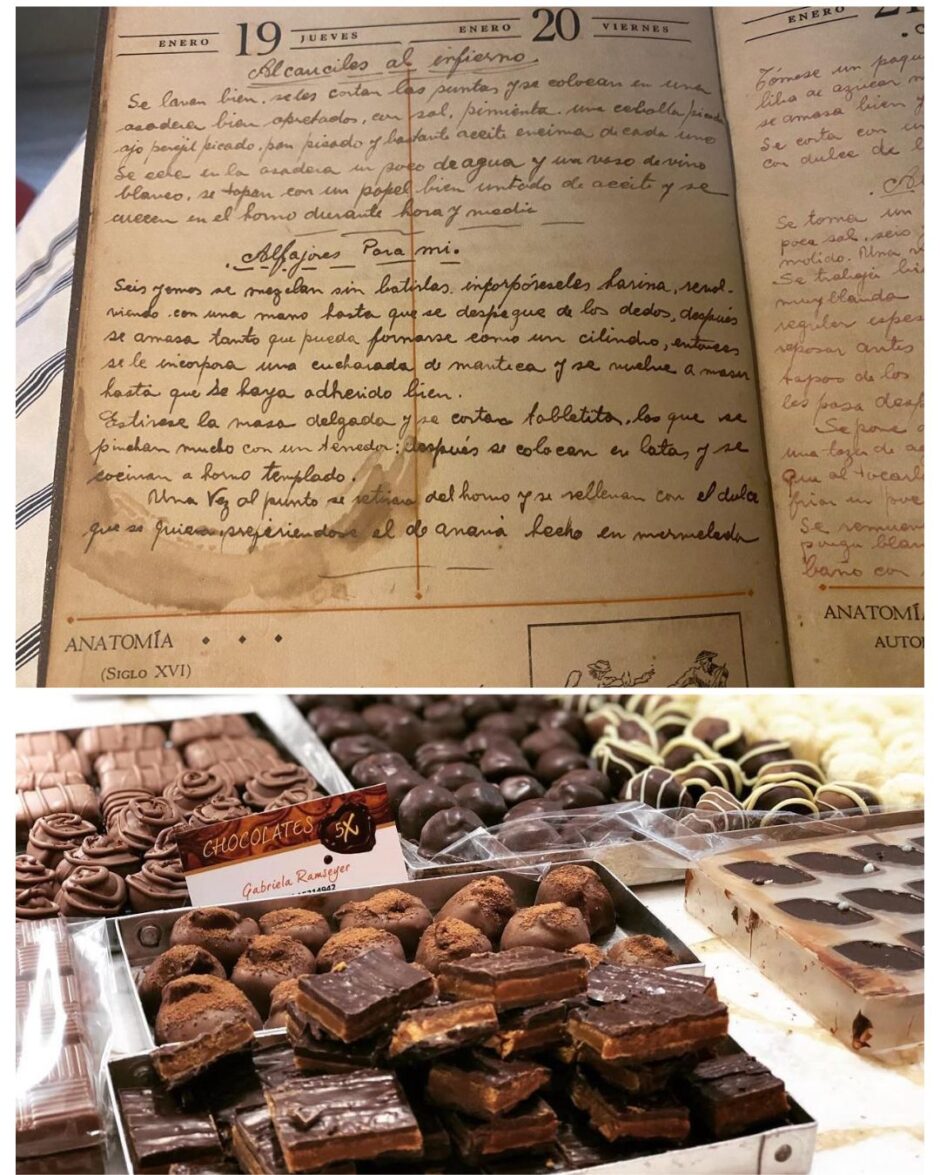 ENERO 19 JUEVES ENERO 20 VIERNES
Alcauciles al infierno.
Se lavan bien, se les cortan las puntas y se colocan en una
asadera bien apretados, con sal, pimienta, una cebolla picada
ajo perejil picado, pan pisado y bastante aceite encima de cada uno
Se echa en la asadera un poco de agua y un vaso de vino
blanco, se tapan con un papel bien untado de aceite y se
cuecen en el horno durante hora y media
. Alfajores Para mi.
Seis yemas se mezclan sin batirlas, incorpóreseles harina, revol-
viendo con una mano hasta que se despegue de los dedos, después
se amasa tanto que pueda formarse como un cilindro, entonces
se le incorpora una cucharada de manteca y se vuelve a masar
hasta que se haya adherido bien.
Estirese la masa delgada y se cortan tabletita, las que se
pinchan mucho con un tenedor; después se colocan en latas y se
cocinan a horno templado.
Una Vez al punto se retiran del horno y se rellenan con el dulce
que se quiera, prefiriendose el de ananá hecho en mermelada
ANATOMÍA
(SIGLO XVI)
ENERO
Tómese un
libra de azúcar
se amasa bien y
Se corta con un
con dulce de l
Se toma un
poca sal, seis
molido. Una
Se trabaja bie
muy blanda
regular espes
reposar antes
tapas de los
les pasa desp
Se pone a
una taza de a
Que al tocarl
friar un poc
Se remuev
ponga blan
baño con
ANATOMÍ
AUTO
CHOCOLATES 5X
Gabriela Ramseyer